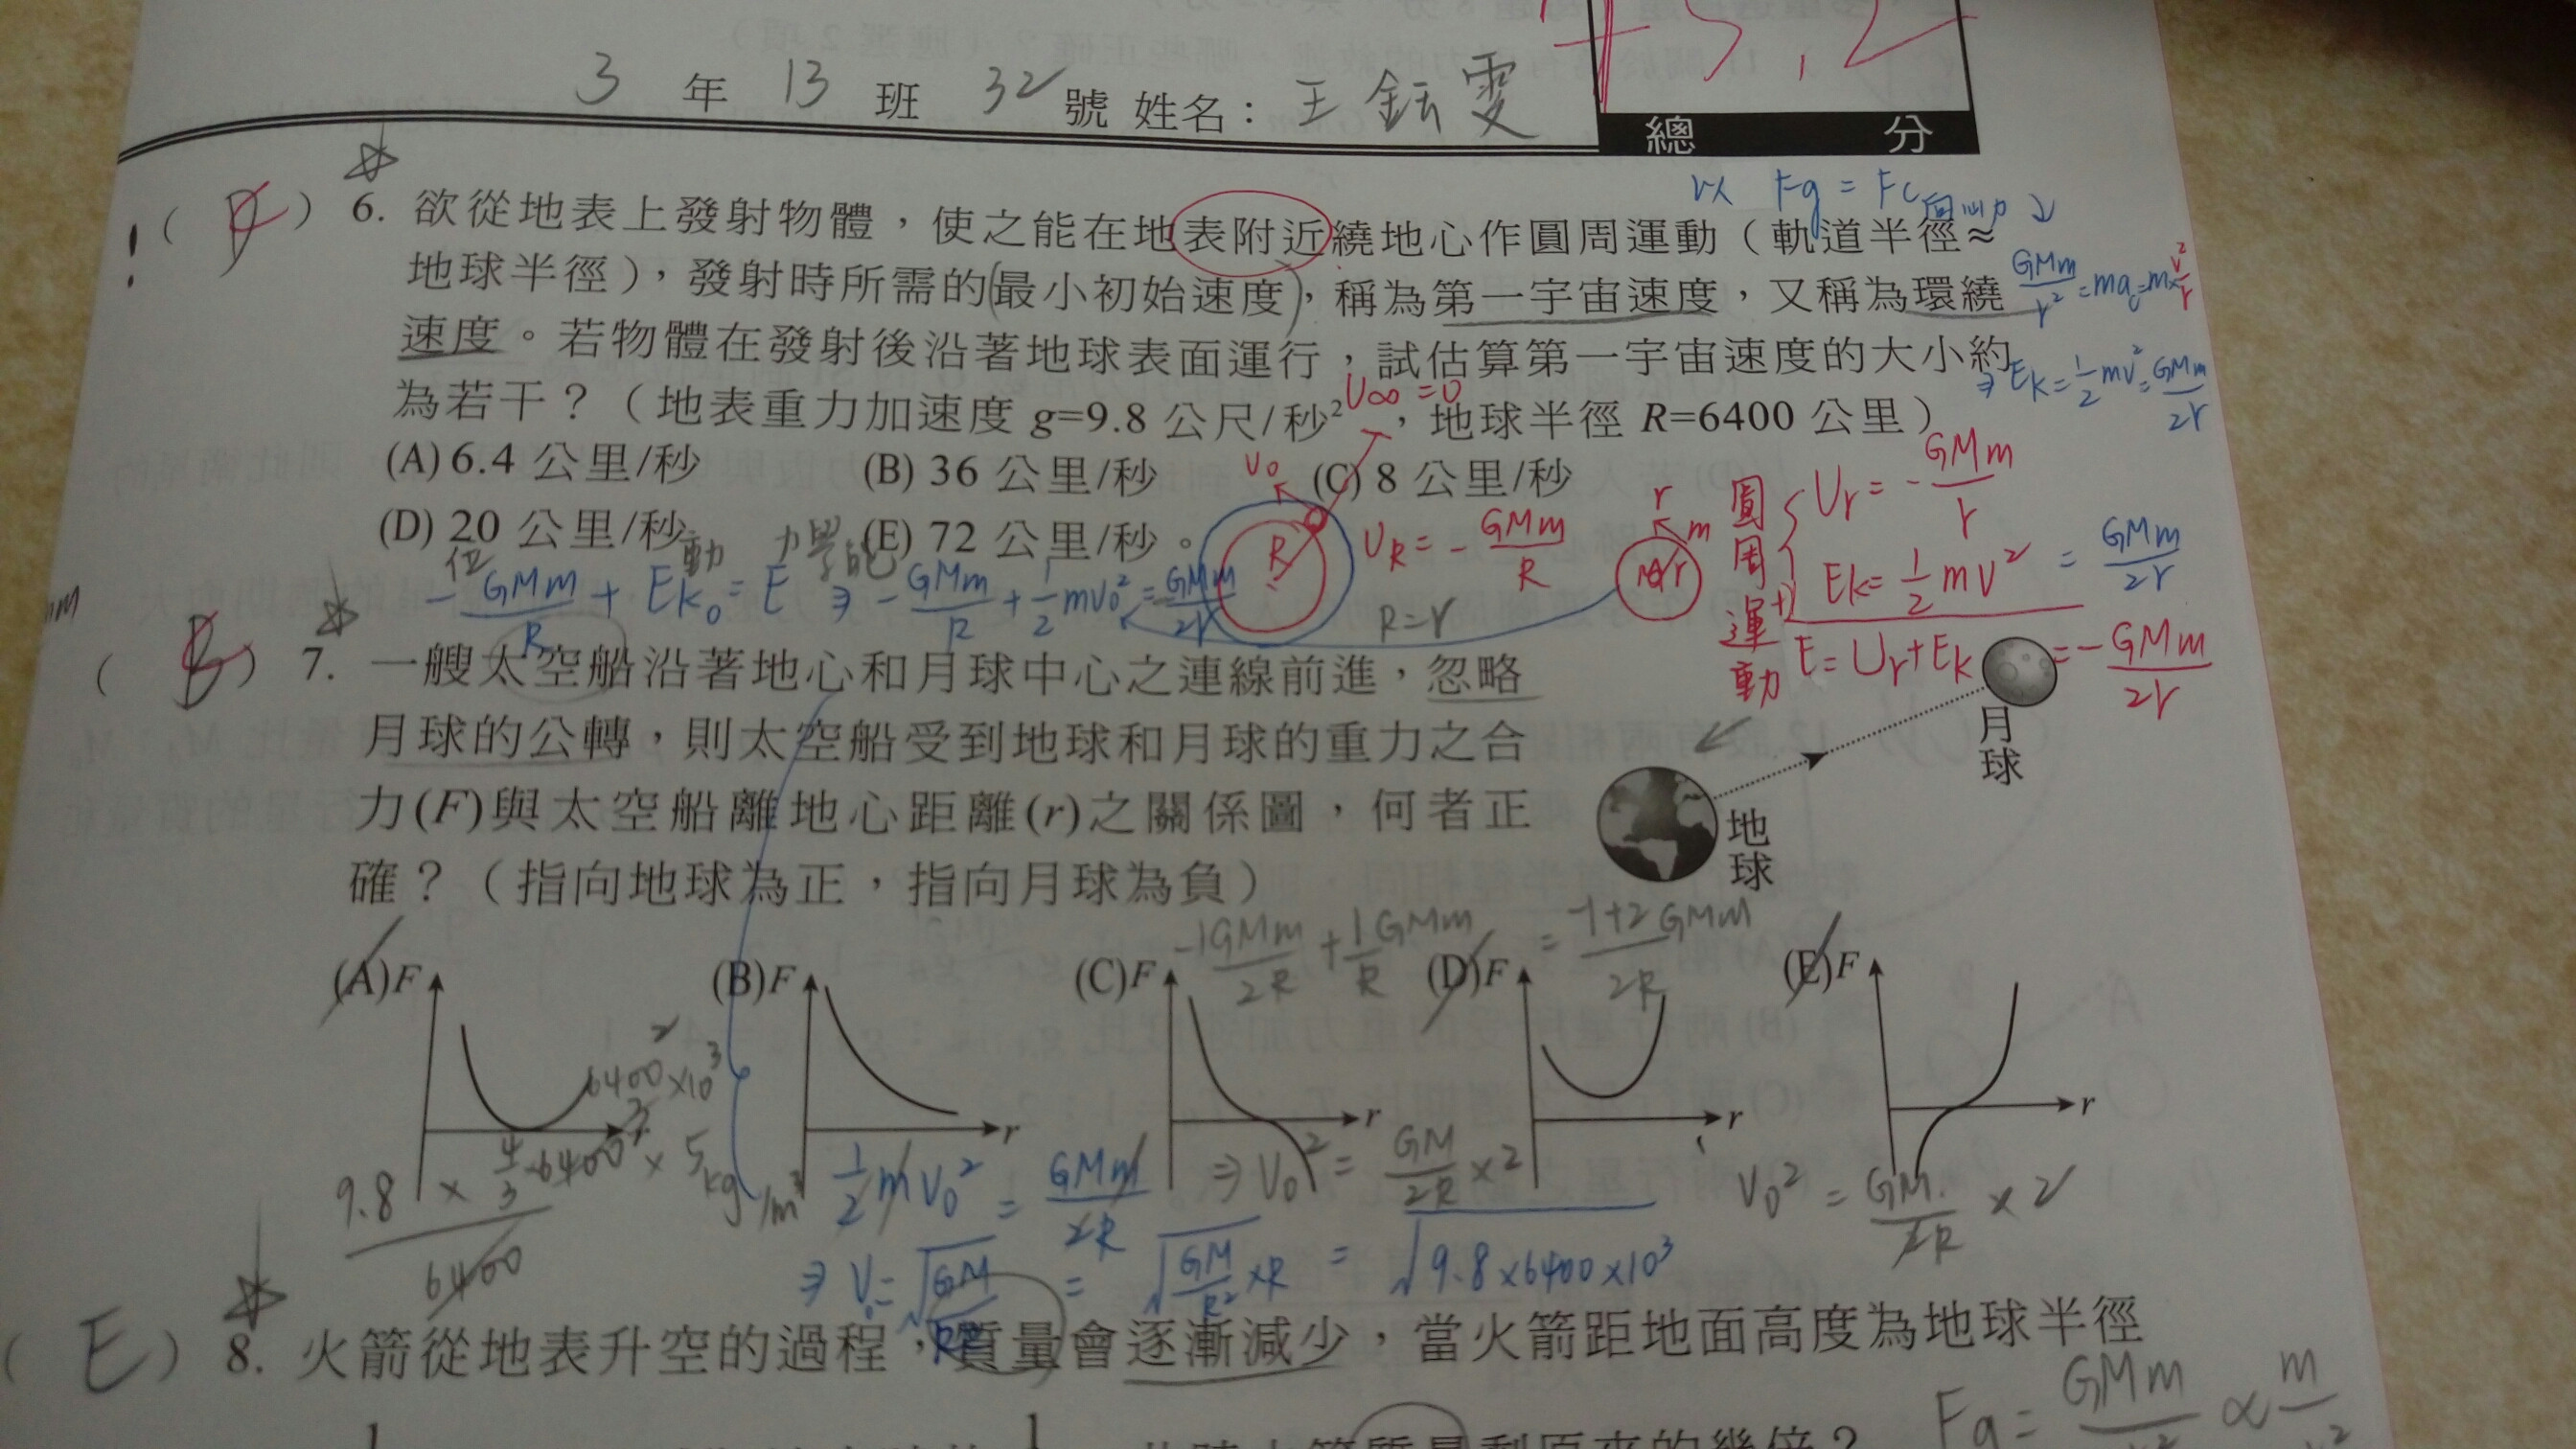 3 年 13 班 32 號 姓名: 王鈺雯
總 分
以 Fg = Fc 向心力
(D) 6. 欲從地表上發射物體,使之能在地表附近繞地心作圓周運動(軌道半徑≈
地球半徑),發射時所需的最小初始速度,稱為第一宇宙速度,又稱為環繞
GMm/r² = ma = m×v²/r
速度。若物體在發射後沿著地球表面運行,試估算第一宇宙速度的大小約
⇒ Ek = 1/2 mv² = GMm/2r
為若干?(地表重力加速度 g=9.8 公尺/秒²,地球半徑 R=6400 公里)
U∞ = 0
(A) 6.4 公里/秒 (B) 36 公里/秒 (C) 8 公里/秒
(D) 20 公里/秒 (E) 72 公里/秒。
V0
R
UR = -GMm/R
R=r
r
m
圓周運動
Ur = -GMm/r
Ek = 1/2 mv² = GMm/2r
+) E = Ur + Ek = -GMm/2r
位 動 力學能
-GMm/R + Ek0 = E ⇒ -GMm/R + 1/2 mv0² = GMm/2r
(B) 7. 一艘太空船沿著地心和月球中心之連線前進,忽略
月球的公轉,則太空船受到地球和月球的重力之合
力(F)與太空船離地心距離(r)之關係圖,何者正
確?(指向地球為正,指向月球為負)
月球
地球
-1GMm/2R + 1GMm/R = -1+2 GMm/2R
(A) F (B) F (C) F (D) F (E) F
r r r r
6400² ×10³
9.8 × 4/3 6400³ × 5 kg/m³
6400
1/2 mV0² = GMm/2R ⇒ V0² = GM/2R ×2
V0² = GM/2R × 2
⇒ V0 = √GM/R = √GM/R² ×R = √9.8×6400×10³
(E) 8. 火箭從地表升空的過程,質量會逐漸減少,當火箭距地面高度為地球半徑
Fg = GMm ∝ m